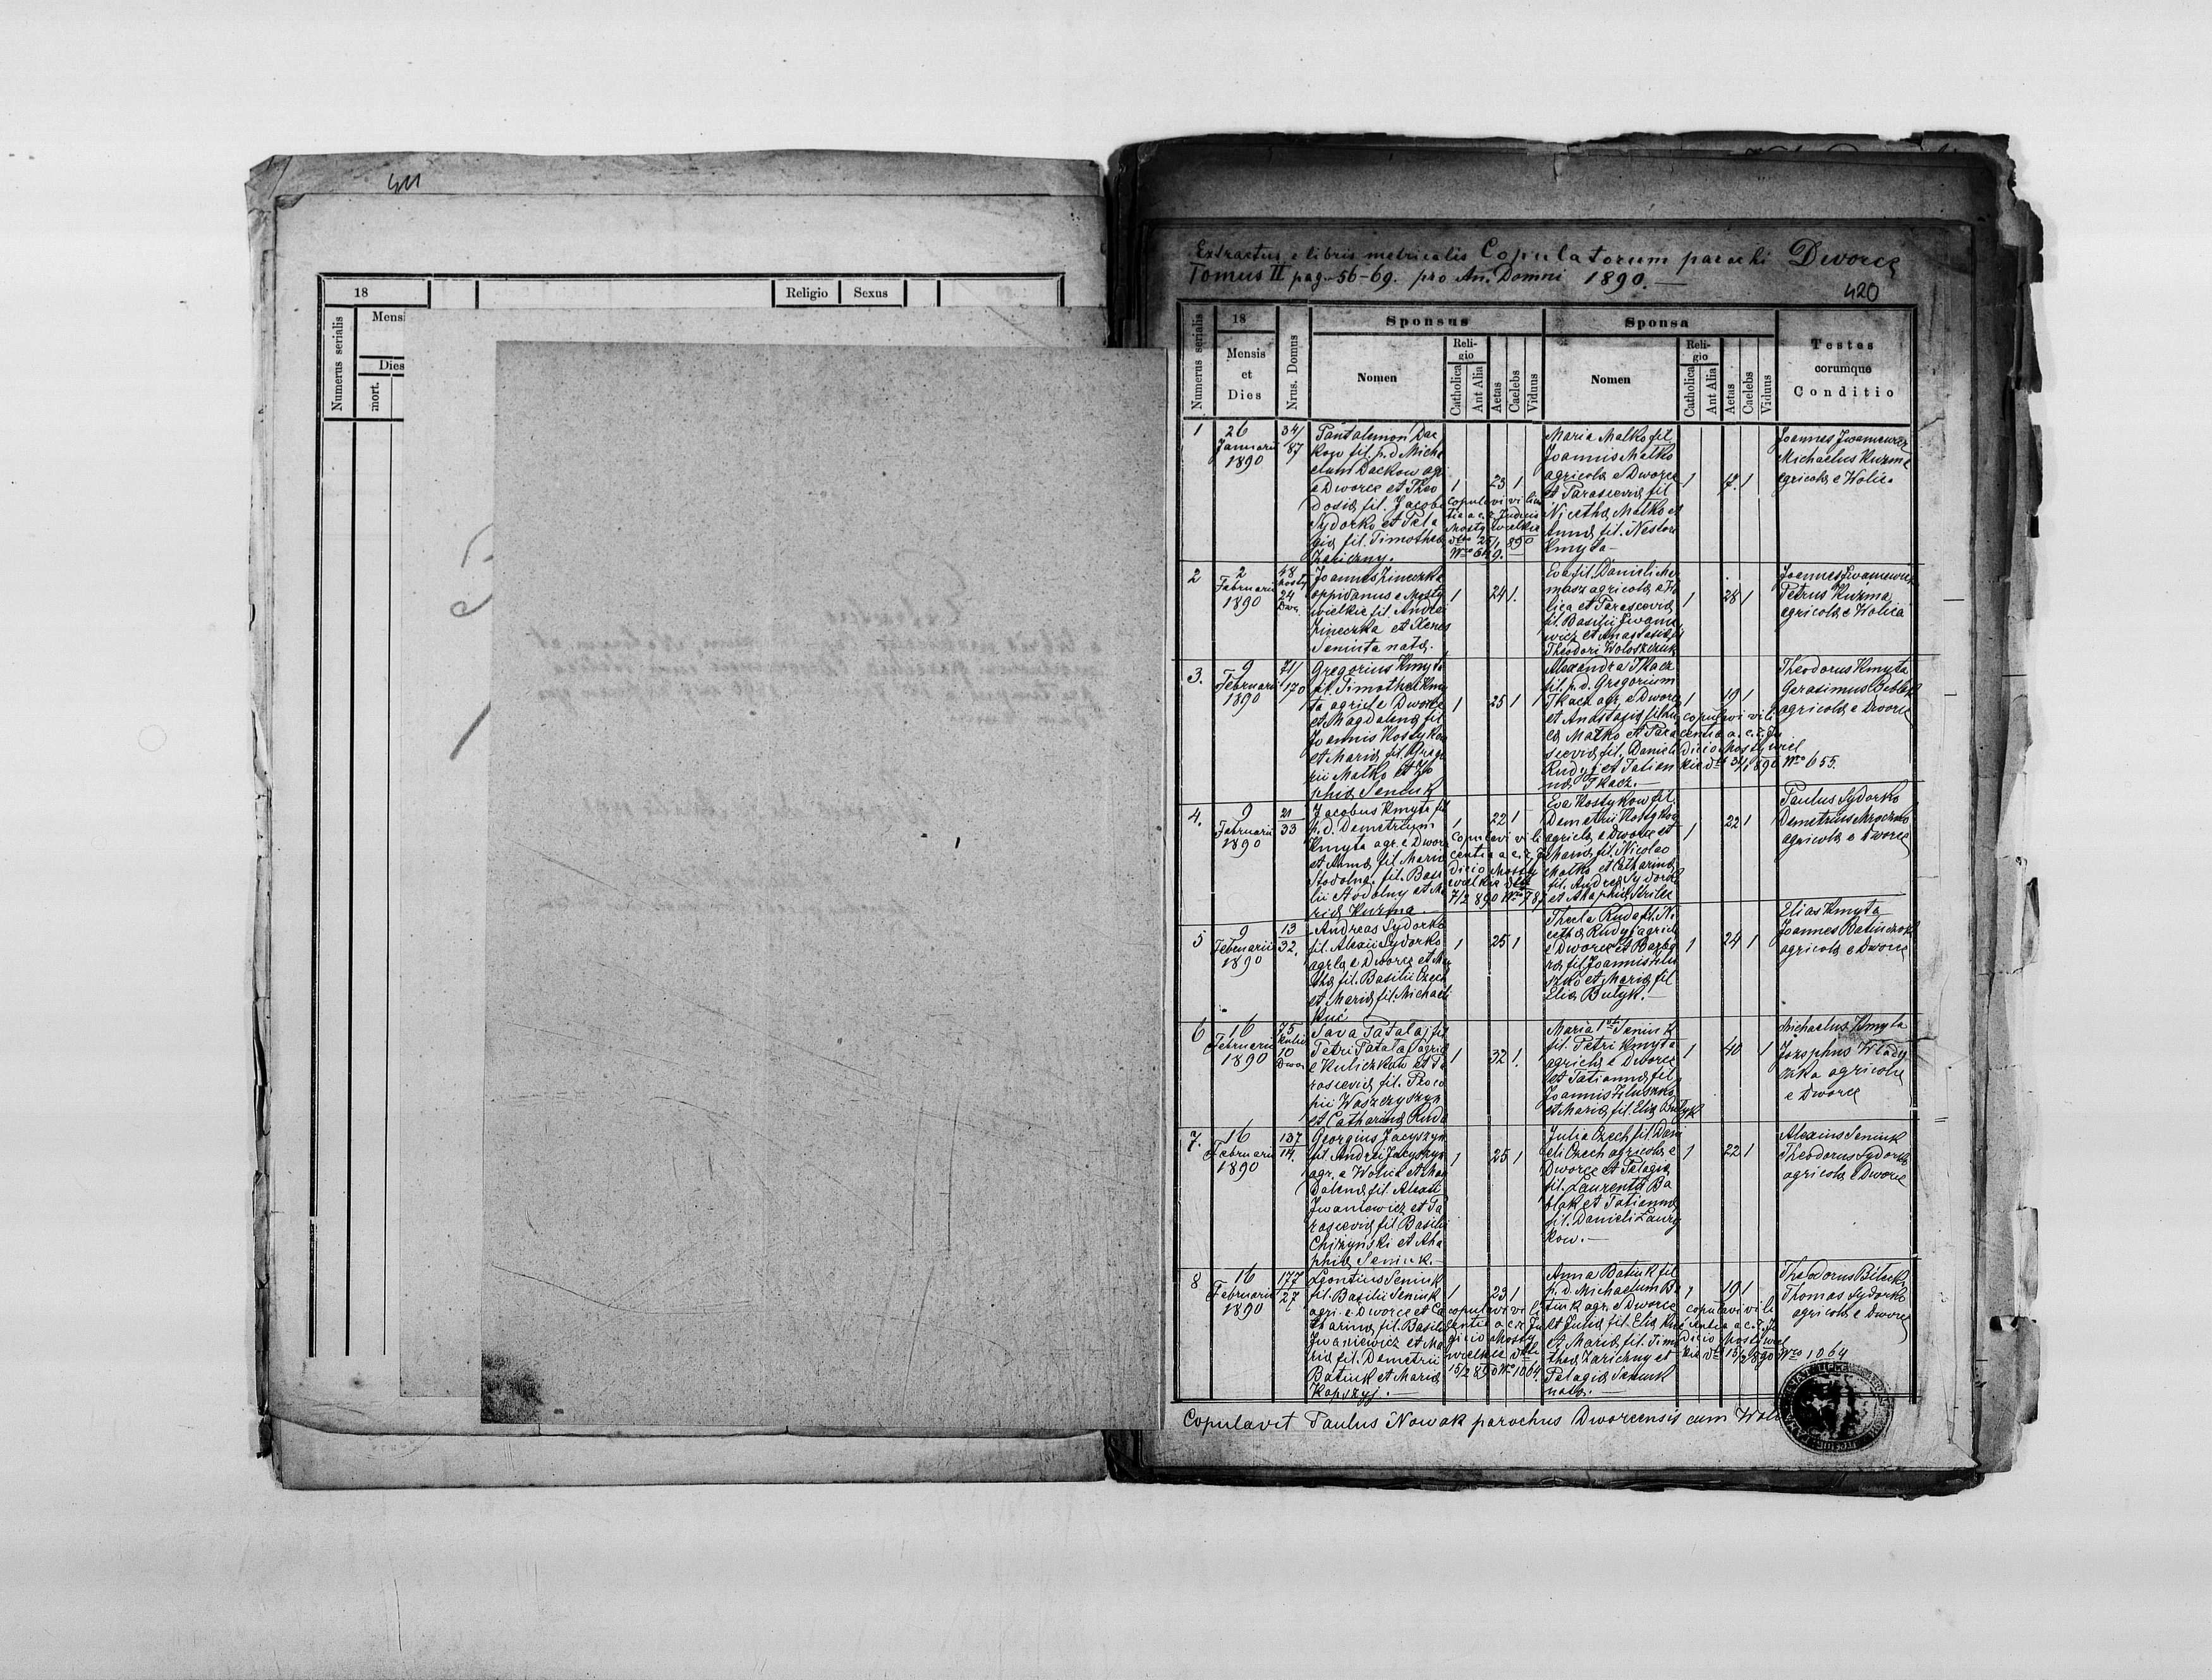 411
18
Religio Sexus
Numerus serialis
Mensi
Dies
mort.
Extractus e libris metricalis Copulatorum parochi Dworce
Tomus II pag. 56-69. pro An. Domni 1890.—
420
Numerus serialis
18
Mensis
et
Dies
Nrus. Domus
Sponsus
Nomen
Reli-
gio
Catholica
Aut Alia
Aetas
Caelebs
Viduus
Sponsa
Nomen
Reli-
gio
Catholica
Aut Alia
Aetas
Caelebs
Viduus
Testes
eorumque
Conditio
1
26
Januarii
1890
34/
87
Pantalemon Dac
kow fil. p. d. Micha
elum Dackow agr.
e Dworce et Theo
dosia fil. Jacobi
Sydorko et Pela
gia fil. Timothea
Zariczny.
1 23 1
Copulavi vi licen
tia a c. r. Judicio
Mosty wielkie
dto 25/1 890
Wro 649.—
Maria Malko fil
Joannis Malko
agricola e Dworce
et Parascevia fil
Nicetha Malko et
Anna fil. Nestora
Kmyta—
1 1
Joannes Jwaniewicz
Michaelus Kuzma
agricola e Wolica
2
2
Februarii
1890
48
Mosty
24
Dwo.
Joannes Zineczka
oppidanus e Mosty
wielkie fil. Andrei
Zineczka et Xenes
Seniuta nata.
1 24 1.
Eva fil. Danieli
agricola e Wo
lica et Parascevia
fil. Basilii Jwanie
wicz et Anastasia fil
Theodori Woloszczuk
1 28 1
Joannes Jwaniewicz
Petrus Kuzma
agricola e Wolica
3.
9
Februarii
1890
71/
170
Gregorius Kmyta
fil. Timothei Kmy
ta agricl e Dworce
et Magdalena fil
Joannis Kostykow
et Maria fil. Grego
rii Malko et Zo
phia Seniuk
1 25 1
Alexandra Tkacz
fil. p. d. Gregorium
Tkacz agr. e Dworce
et Anastasia fil
Malko et Para
scevia fil. Danieli
Rudyj et Tatian
na Tkacz.
1 19 1
copulavi vi li
centia a. c. r. Ju
dicio Mosty wiel
kie dto 31/1 890 Wro 655.
Theodorus Kmyta
Gerasimus
agricola e Dworce
4.
9
Februarii
1890
21
33
Jacobus Kmyta fil
p. d. Demetrium
Kmyta agr. e Dworce
et Anna fil. Maria
Stodolna fil. Basi
lii Stodolny et Ma
ria Kuzma
1 22 1
Copulavi vi li
centia a c. r. Ju
dicio Mosty
wielkie dto
7/2 890 Wro 781
Eva Kostykow fil
Demetrii Kostykow
agricla e Dworce et
Maria fil. Nicolao
Malko et Catharina
fil. Andrea Sydorko
et Ahaphia
1 22 1
Paulus Sydorko
Demetrius
agricola e Dworce
5
9
Februarii
1890
13
32.
Andreas Sydorko
fil. Alexii Sydorko
agrla e Dworce et Mar
tha fil. Basilii Czech
et Maria fil. Michaeli
Kuć
1 25 1
Thecla Ruda fil. Ni
cetha Rudyj agricl
e Dworce et Barba
ra fil. Joannis Hlu
szko et Maria fil
Elia Butyk.—
1 24 1
Elias Kmyta
Joannes
agricola e Dworce
6
16
Februarii
1890
75
Kulicz
10
Dwor
Sava Patalaj fil
Petri Patalaj agricl
e Kuliczkow et Pa
rascevia fil. Proco
pii Waszczyszyn
et Catharina Ruda
1 32 1.
Maria Seniuk
fil. Petri Kmyta
agricla e Dworce
et Tatianna fil
Joannis Hluszko
et Maria fil. Elia Butyk
1 40 1
Michaelus Kmyta
Josephus Wlady
czka agricola
e Dworce
7.
16
Februarii
1890
137
14.
Georgius Jacyszyn
fil. Andrei Jacyszyn
agr. e Wolica et Mag
dalena fil. Alexii
Jwaniewicz et Pa
rascevia fil. Basilii
Chizynski et Aha
phia Seniuk.
1 25 1
Julia Czech fil. Dani
eli Czech agricola e
Dworce et Pelagia
fil. Laurentii Ba
blak et Tatianna
fil. Danieli Laury
kow.—
1 22 1
Alexius Seniuk
Theodorus Sydorko
agricola e Dworce
8
16
Februarii
1890
177
27
Leontius Seniuk
fil. Basilii Seniuk
agri. e Dworce et Ca
tharina fil. Basilii
Jwaniewicz et Ma
ria fil. Demetrii
Batiuk et Maria
Kopyzyj.—
1 23 1
copulavi vi li
centia a c. r. Ju
dicio Mosty
wielkie dto
15/2 890 Wro 1064.
Anna Batiuk fil
p. d. Michaelum Ba
tiuk agr. e Dworce
et Juna fil. Elia Kuć
et Maria fil. Timo
thea Zariczny et
Pelagia Seniuk
nata.—
1 19 1
copulavi vi li
centia a c. r. Ju
dicio Mosty wiel
kie dto 15/2 890 Wro 1064
Theodorus
Thomas Sydorko
agricola e Dworce
Copulavit Paulus Nowak parochus Dworcensis cum